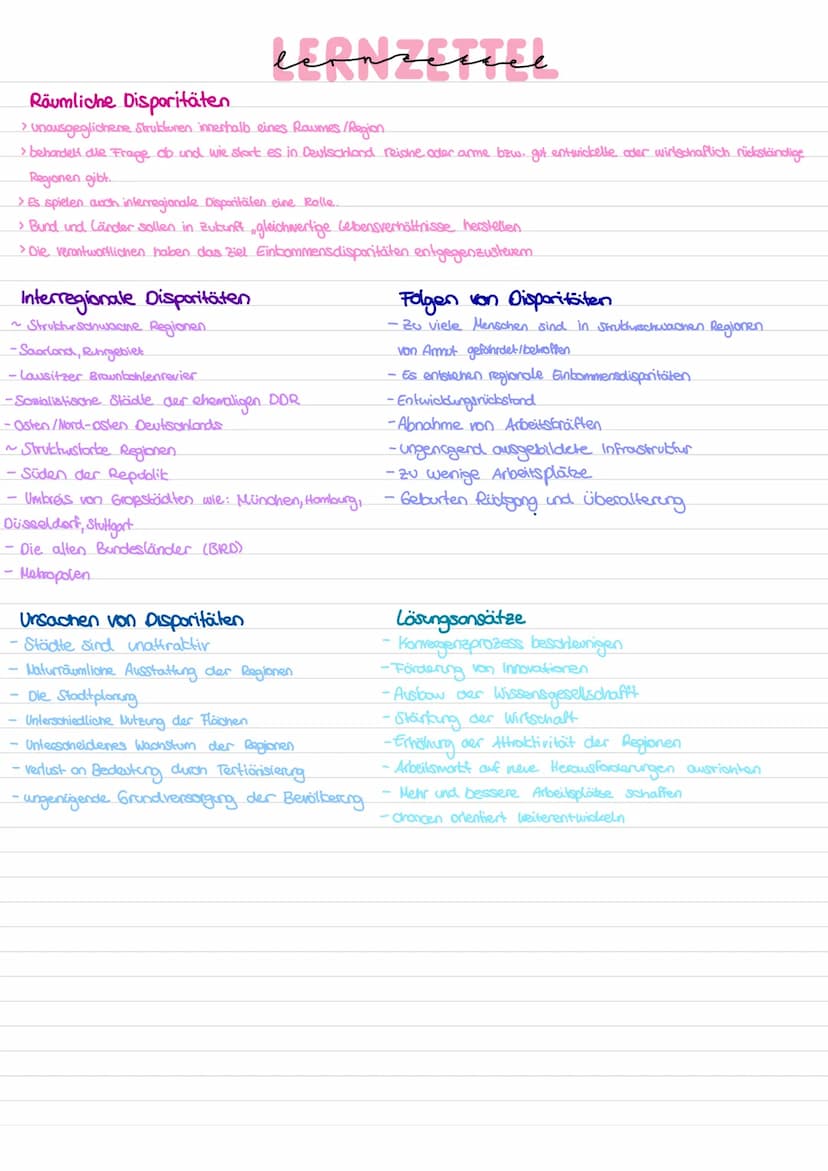 LERNZETTEL
lernzettel
Räumliche Disparitäten
> unausgeglichene Strukturen innerhalb eines Raumes/Region
> behandelt die Frage ob und wie stark es in Deutschland reiche oder arme bzw. gut entwickelte oder wirtschaftlich rückständige
Regionen gibt.
> Es spielen auch interregionale Disparitäten eine Rolle.
> Bund und Länder sollen in Zukunft „gleichwertige Lebensverhältnisse herstellen
> Die Verantwortlichen haben das Ziel Einkommensdisparitäten entgegenzusteuern
Interregionale Disparitäten
~ Strukturschwache Regionen
- Saarland, Ruhrgebiet
- Lausitzer Braunkohlenrevier
- Sozialistische Städte der ehemaligen DDR
- Osten/Nord-osten Deutschlands
~ Strukturstarke Regionen
- Süden der Republik
- Umkreis von Großstädten wie: München, Hamburg,
Düsseldorf, Stuttgart
- Die alten Bundesländer (BRD)
- Metropolen
Folgen von Disparitäten
- Zu viele Menschen sind in strukturschwachen Regionen
von Armut gefährdet/betroffen
- Es entstehen regionale Einkommensdisparitäten
- Entwicklungsrückstand
- Abnahme von Arbeitskräften
- ungenügend ausgebildete Infrastruktur
- zu wenige Arbeitsplätze
- Geburten Rückgang und Überalterung
Ursachen von Disparitäten
- Städte sind unattraktiv
- Naturräumliche Ausstattung der Regionen
- Die Stadtplanung
- Unterschiedliche Nutzung der Flächen
- Unterscheidenes Wachstum der Regionen
- Verlust an Bedeutung durch Tertiärisierung
- ungenügende Grundversorgung der Bevölkerung
Lösungsansätze
- Konvergenzprozess beschleunigen
- Förderung von Innovationen
- Ausbau der Wissensgesellschaft
- Stärkung der Wirtschaft
- Erhöhung der Attraktivität der Regionen
- Arbeitsmarkt auf neue Herausforderungen ausrichten
- Mehr und bessere Arbeitsplätze schaffen
- chancen orientiert weiterentwickeln